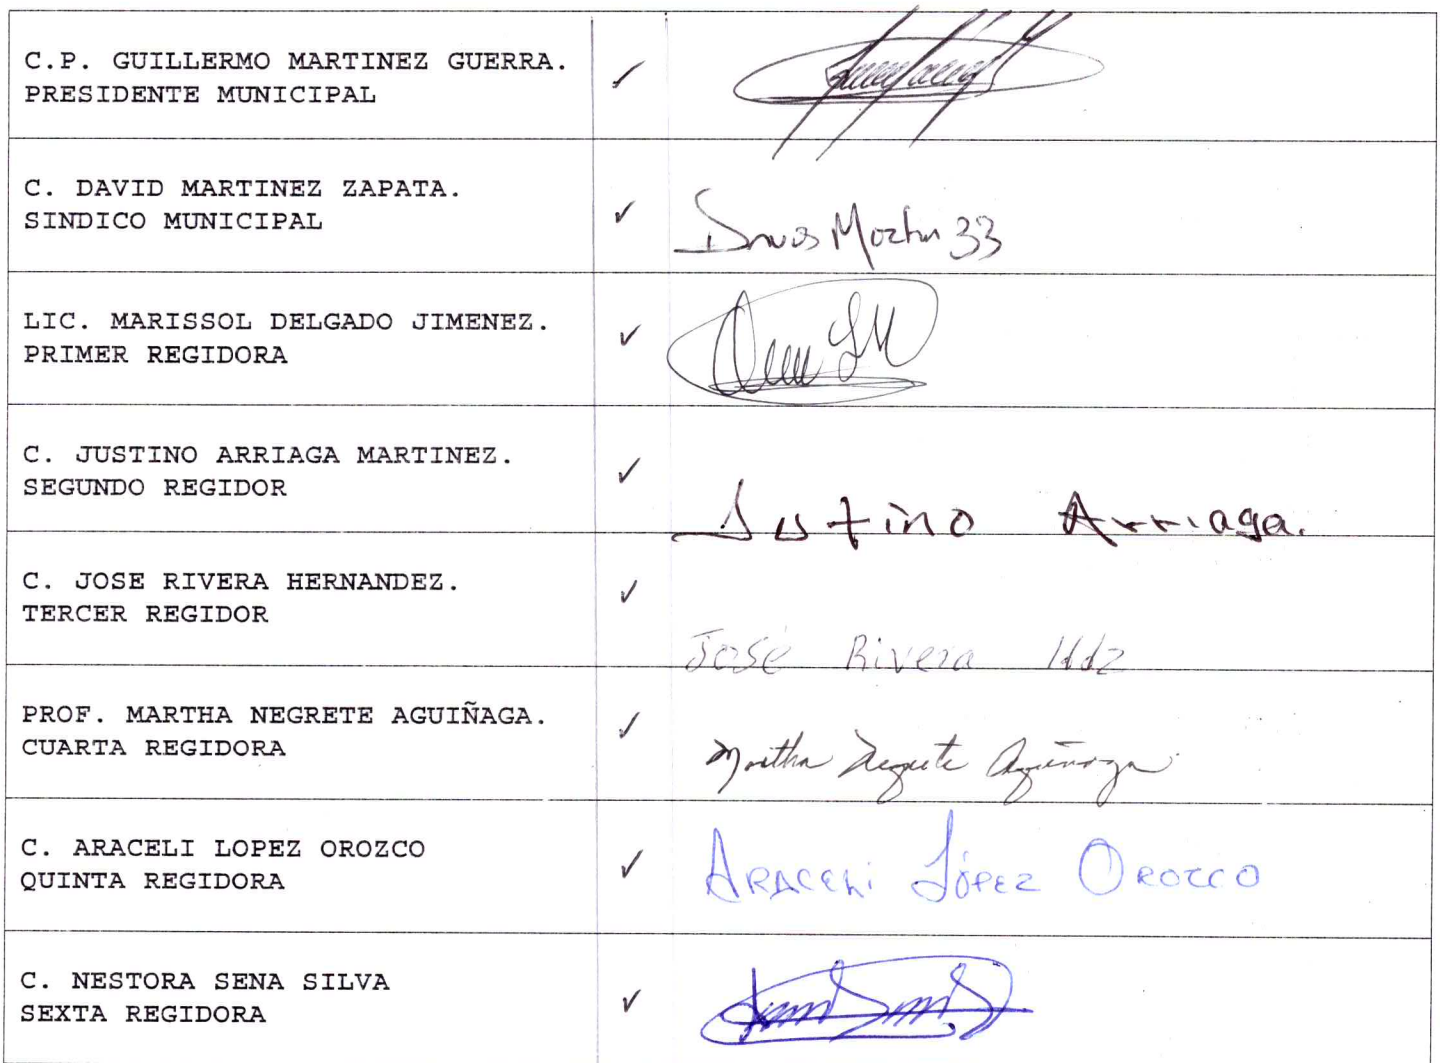 C.P. GUILLERMO MARTINEZ GUERRA.
PRESIDENTE MUNICIPAL
✓
C. DAVID MARTINEZ ZAPATA.
SINDICO MUNICIPAL
✓
LIC. MARISSOL DELGADO JIMENEZ.
PRIMER REGIDORA
✓
C. JUSTINO ARRIAGA MARTINEZ.
SEGUNDO REGIDOR
✓
Justino Arriaga.
C. JOSE RIVERA HERNANDEZ.
TERCER REGIDOR
✓
José Rivera Hdz
PROF. MARTHA NEGRETE AGUIÑAGA.
CUARTA REGIDORA
✓
Martha Negrete Aguiñaga
C. ARACELI LOPEZ OROZCO
QUINTA REGIDORA
✓
ARACELi LÓPEZ OROZCO
C. NESTORA SENA SILVA
SEXTA REGIDORA
✓